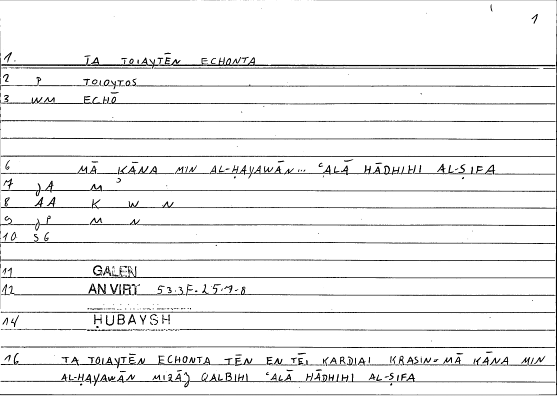 1
1. TA TOIAYTĒN ECHONTA
2 P TOIOYTOS
3 WM ECHŌ
6 MĀ KĀNA MIN AL-ḤAYAWĀN... ʿALĀ HĀDHIHI AL-ṢIFA
7 JA M ʾ
8 AA K W N
9 JP M N
10 SG
11 GALEN
12 AN VIRT 53.3F-25.7-8
14 ḤUBAYSH
16 TA TOIAYTĒN ECHONTA TĒN EN TĒI KARDIAI KRASIN= MĀ KĀNA MIN
AL-ḤAYAWĀN MIZĀJ QALBIHI ʿALĀ HĀDHIHI AL-ṢIFA